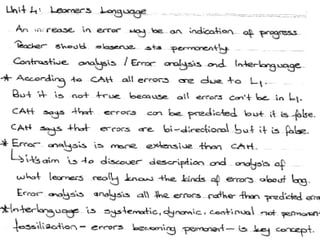 Unit 4: Learners Language
An increase in error may be an indication of progress.
Teacher should observe sts permanently.
Contrastive analysis / Error analysis and Interlanguage
* According to CAH all errors are due to L1.
But it is not true because all errors can't be in L1.
CAH says that errors can be predicted but it is false.
CAH says that errors are bi-directional but it is false.
* Error analysis is more extensive than CAH.
↳ it's aim is to discover description and analysis of
what learners really know the kinds of errors about lag.
Error analysis analysis all the errors rather than predicted erros
* Interlanguage is systematic, dynamic, continual not permanent
fossilization - errors becoming permanent - is key concept.